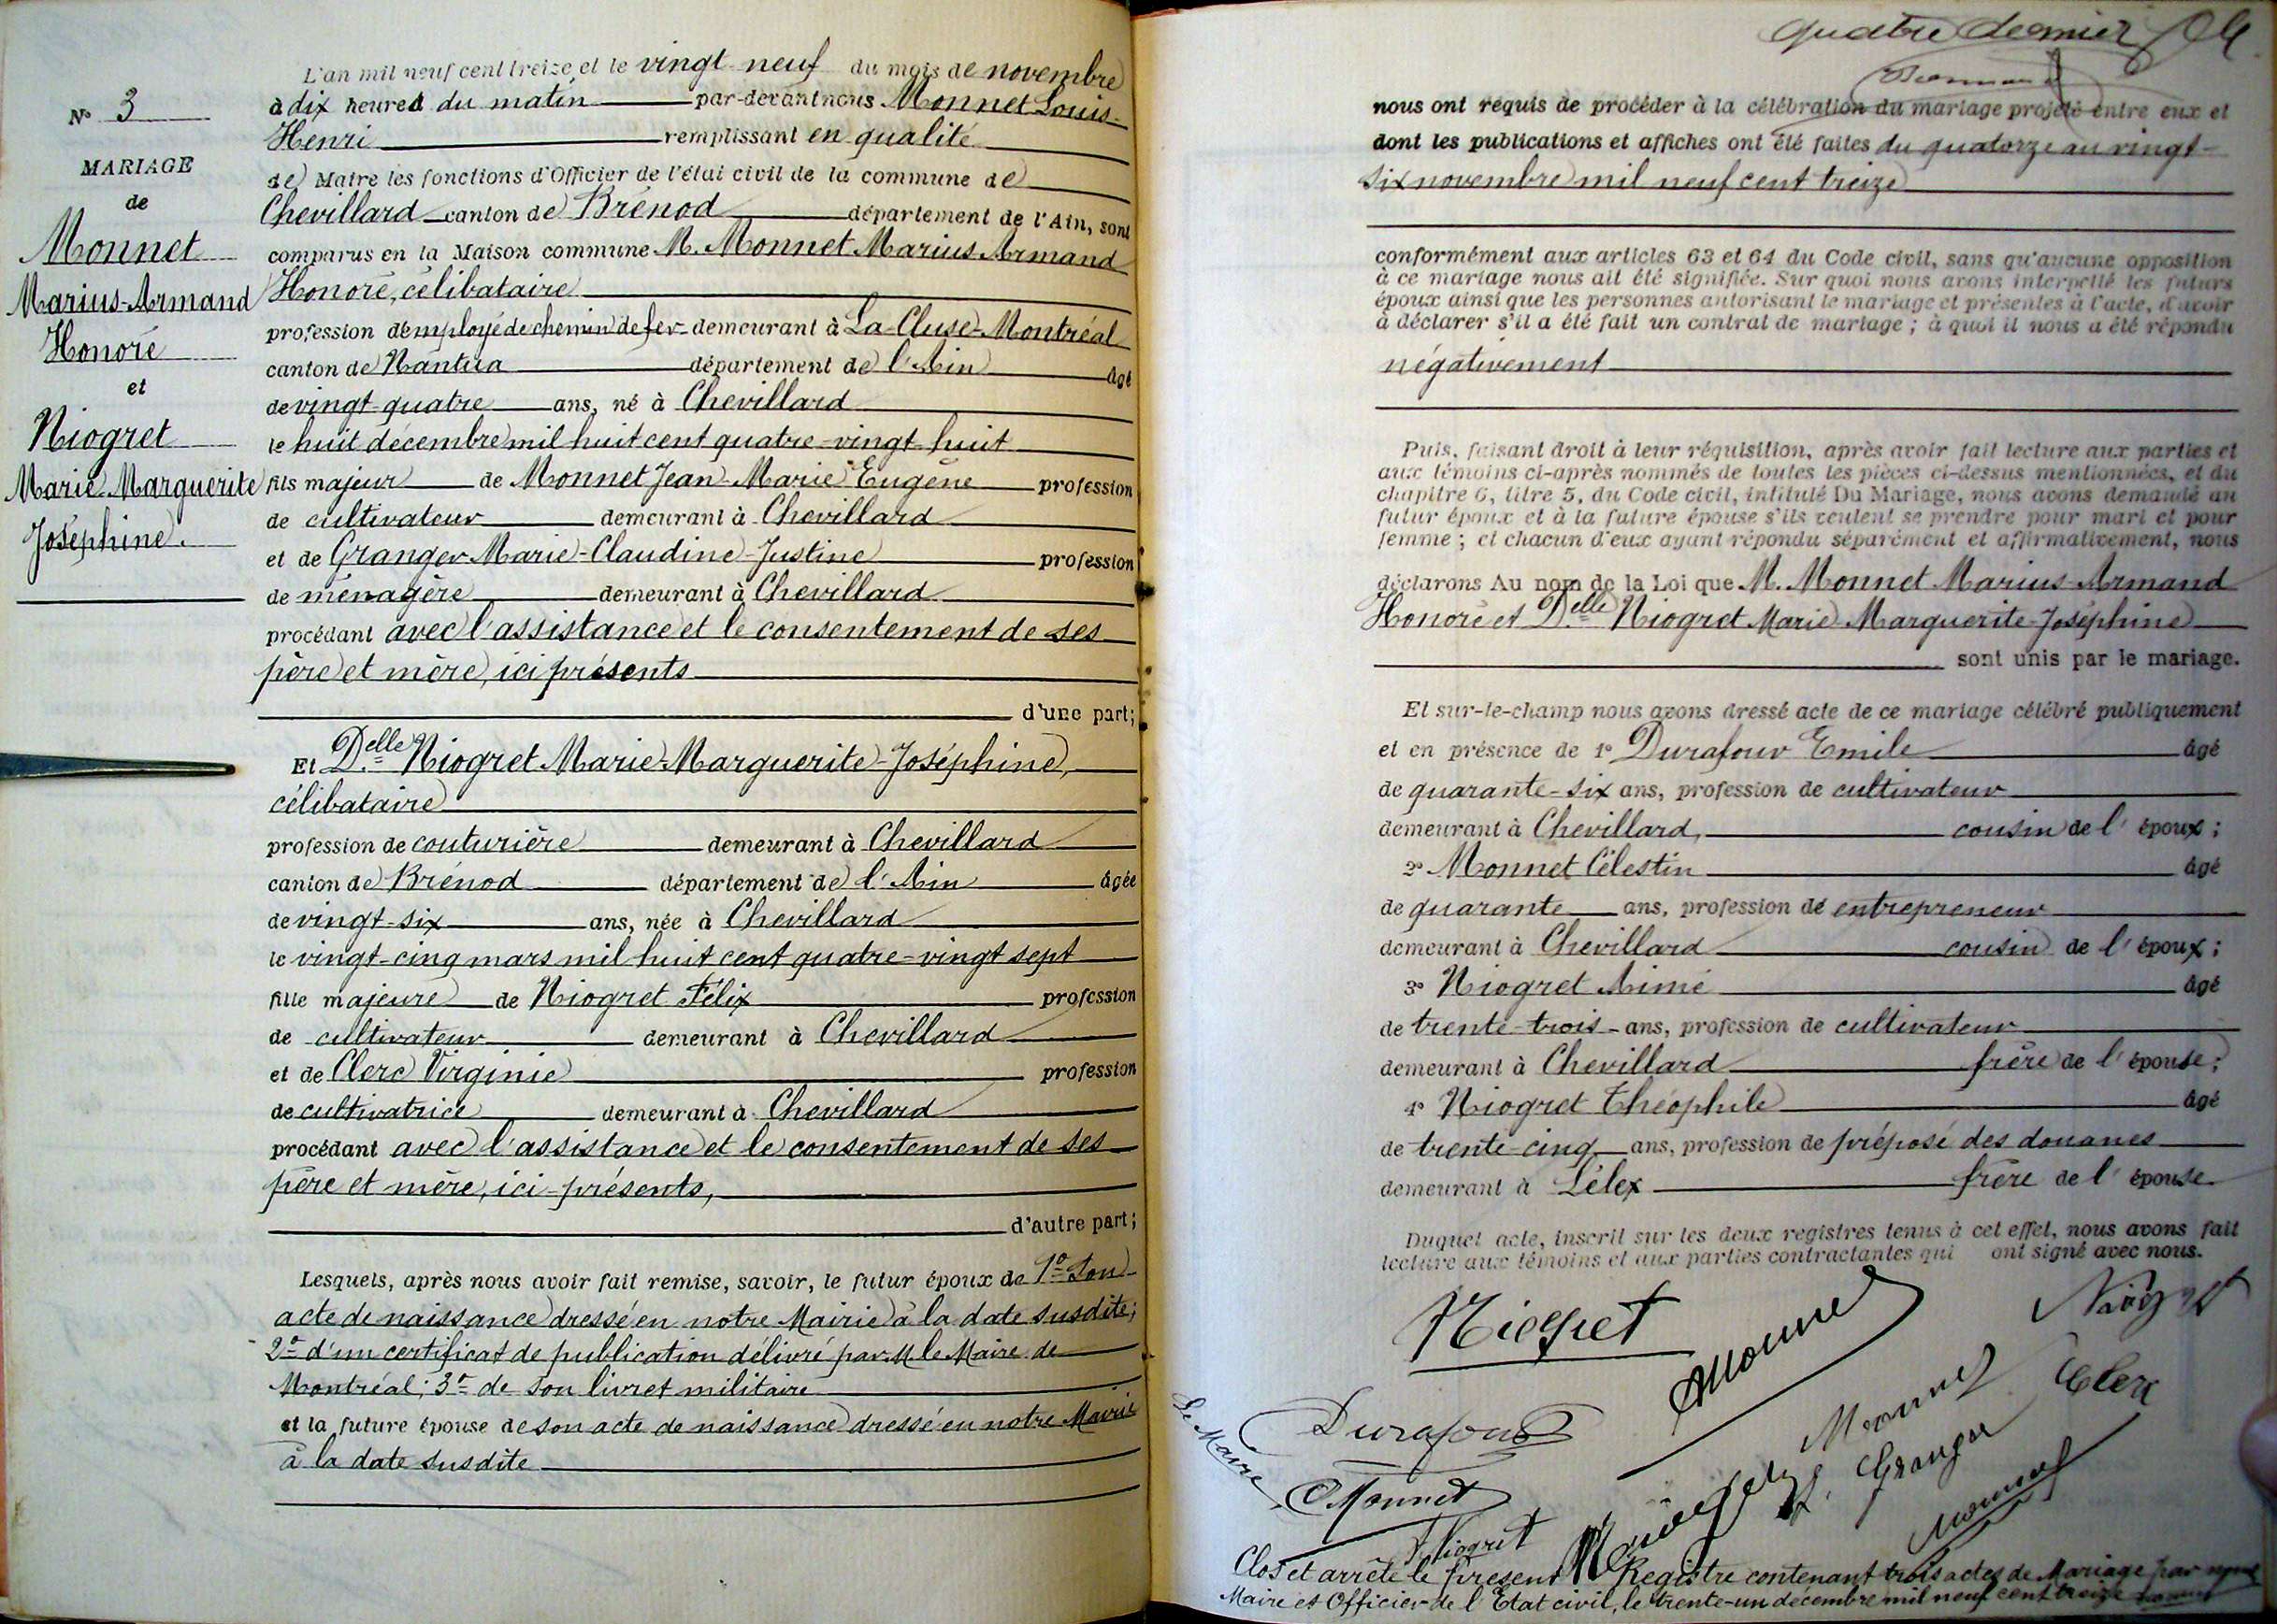 L'an mil neuf cent treize et le vingt neuf du mois de novembre
à dix heures du matin par-devant nous Monnet Louis-
Henri remplissant en qualité
de Maire les fonctions d'Officier de l'état civil de la commune de
Chevillard canton de Brénod département de l'Ain, sont
comparus en la Maison commune M. Monnet Marius-Armand
Honoré, célibataire
profession d'employé de chemin de fer demeurant à La Cluse-Montréal
canton de Nantua département de l'Ain âgé
de vingt-quatre ans, né à Chevillard
le huit décembre mil huit cent quatre-vingt huit
fils majeur de Monnet Jean-Marie Eugène profession
de cultivateur demeurant à Chevillard
et de Granger Marie-Claudine-Justine profession
de ménagère demeurant à Chevillard
procédant avec l'assistance et le consentement de ses
père et mère, ici présents
d'une part;
Et Delle Niogret Marie-Marguerite-Joséphine,
célibataire
profession de couturière demeurant à Chevillard
canton de Brénod département de l'Ain âgée
de vingt-six ans, née à Chevillard
le vingt-cinq mars mil huit cent quatre-vingt sept
fille majeure de Niogret Félix profession
de cultivateur demeurant à Chevillard
et de Clerc Virginie profession
de cultivatrice demeurant à Chevillard
procédant avec l'assistance et le consentement de ses
père et mère, ici-présents,
d'autre part;
Lesquels, après nous avoir fait remise, savoir, le futur époux de 1º Son
acte de naissance dressé en notre Mairie à la date susdite;
2º d'un certificat de publication délivré par M. le Maire de
Montréal; 3º de son livret militaire
et la future épouse de son acte de naissance dressé en notre Mairie
à la date susdite
Nº 3
MARIAGE
de
Monnet
Marius-Armand
Honoré
et
Niogret
Marie Marguerite
Joséphine.
quatre dernier
nous ont requis de procéder à la célébration du mariage projeté entre eux et
dont les publications et affiches ont été faites du quatorze au vingt-
six novembre mil neuf cent treize
conformément aux articles 63 et 64 du Code civil, sans qu'aucune opposition
à ce mariage nous ait été signifiée. Sur quoi nous avons interpellé les futurs
époux ainsi que les personnes autorisant le mariage et présentes à l'acte, d'avoir
à déclarer s'il a été fait un contrat de mariage ; à quoi il nous a été répondu
négativement
Puis, faisant droit à leur réquisition, après avoir fait lecture aux parties et
aux témoins ci-après nommés de toutes les pièces ci-dessus mentionnées, et du
chapitre 6, titre 5, du Code civil, intitulé Du Mariage, nous avons demandé au
futur époux et à la future épouse s'ils veulent se prendre pour mari et pour
femme ; et chacun d'eux ayant répondu séparément et affirmativement, nous
déclarons Au nom de la Loi que M. Monnet Marius-Armand
Honoré et Delle Niogret Marie Marguerite-Joséphine
sont unis par le mariage.
Et sur-le-champ nous avons dressé acte de ce mariage célébré publiquement
et en présence de 1º Durafour Emile âgé
de quarante-six ans, profession de cultivateur
demeurant à Chevillard, cousin de l'époux ;
2º Monnet Célestin âgé
de quarante ans, profession de entrepreneur
demeurant à Chevillard cousin de l'époux ;
3º Niogret Aimé âgé
de trente-trois ans, profession de cultivateur
demeurant à Chevillard frère de l'épouse ;
4º Niogret Théophile âgé
de trente-cinq ans, profession de préposé des douanes
demeurant à Lélex frère de l'épouse.
Duquel acte, inscrit sur les deux registres tenus à cet effet, nous avons fait
lecture aux témoins et aux parties contractantes qui ont signé avec nous.
Niogret
Monnet
Niogret
Durafour
Monnet
Clerc
Granger
Le Maire,
Monnet
Niogret
Monnet
Clos et arrêté le présent Registre contenant trois actes de Mariage par nous
Maire et Officier de l'Etat civil, le trente-un décembre mil neuf cent treize